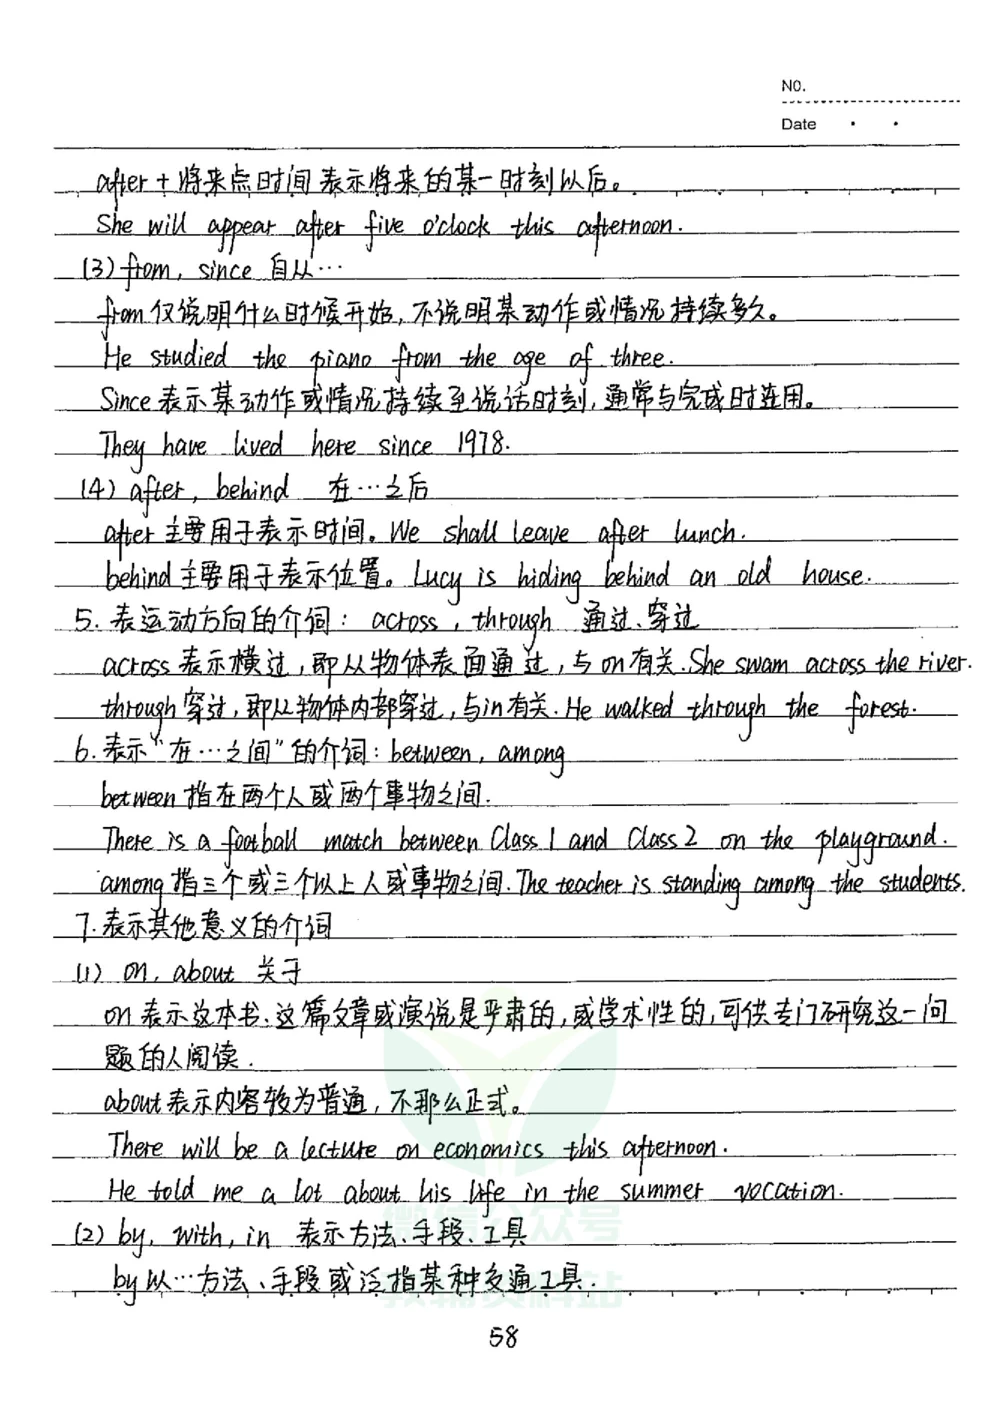 NO.
Date
after + 将来点时间 表示将来的某一时刻以后。
She will appear after five o'clock this afternoon.
(3) from, since 自从…
from 仅说明什么时候开始, 不说明某动作或情况持续多久。
He studied the piano from the age of three.
Since 表示某动作或情况持续至说话时刻, 通常与完成时连用。
They have lived here since 1978.
(4) after, behind 在…之后
after 主要用于表示时间。We shall leave after lunch.
behind 主要用于表示位置。Lucy is hiding behind an old house.
5. 表运动方向的介词: across, through 通过、穿过
across 表示横过, 即从物体表面通过, 与on有关. She swam across the river.
through 穿过, 即从物体内部穿过, 与in有关. He walked through the forest.
6. 表示“在…之间”的介词: between, among
between 指在两个人或两个事物之间.
There is a football match between Class 1 and Class 2 on the playground.
among 指三个或三个以上人或事物之间. The teacher is standing among the students.
7. 表示其他意义的介词
(1) on, about 关于
on 表示这本书、这篇文章或演说是严肃的, 或学术性的, 可供专门研究这一问
题的人阅读.
about 表示内容较为普通, 不那么正式。
There will be a lecture on economics this afternoon.
He told me a lot about his life in the summer vocation.
(2) by, with, in 表示方法、手段、工具
微信公众号
by 以…方法、手段或泛指某种交通工具.
教辅资料站
58